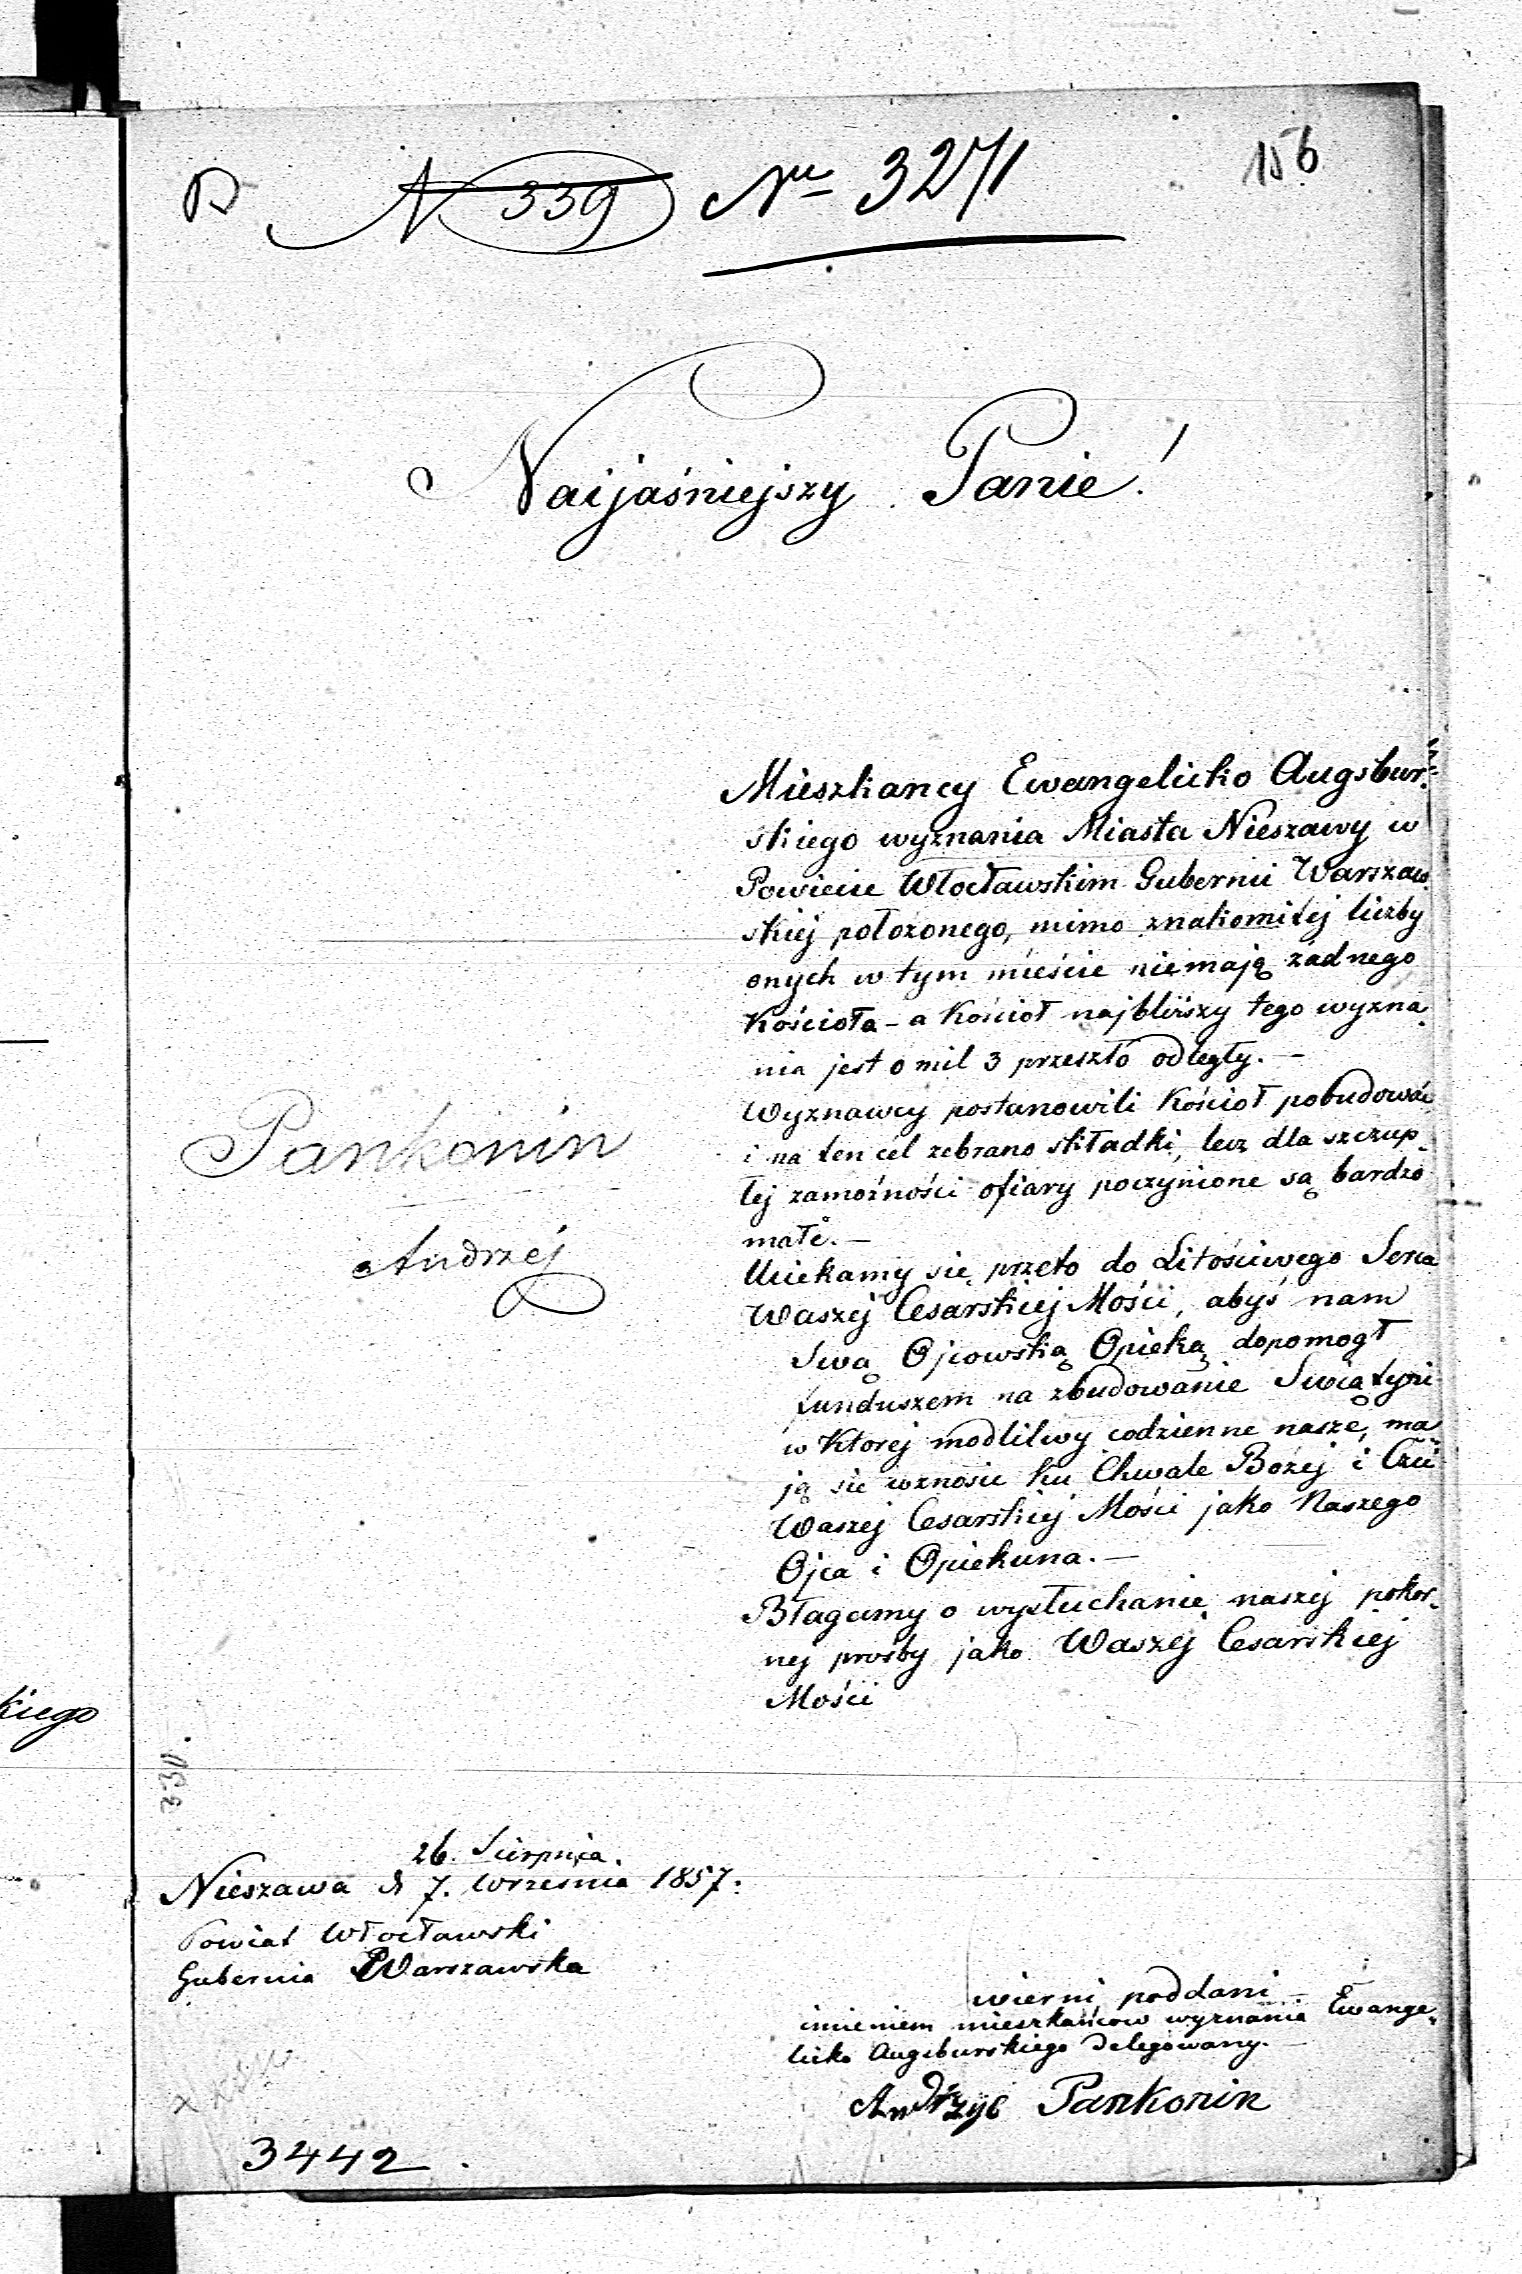 B N 339 Nr 3271 156
Naijaśniejszy Panie!
Mieszkancy Ewangelicko Augsbur-
skiego wyznania Miasta Nieszawy w
Powiecie Włocławskim Gubernii Warszaw-
skiej położonego, mimo znakomitej liczby
onych w tym mieście niemają żadnego
Kościoła - a Kościoł najbliższy tego wyzna-
nia jest o mil 3 przeszło odległy. -
Wyznawcy postanowili Kościoł pobudować
i na ten cel zebrano składki, lecz dla szczup-
łej zamożności ofiary poczynione są bardzo
małe. -
Uciekamy się przeto do Litościwego Serca
Waszej Cesarskiej Mości, abyś nam
Swą Ojcowską Opieką dopomogł
funduszem na zbudowanie Swiątyni
w Ktorej modlitwy codzienne nasze, ma-
ją sie wznosic ku Chwale Bożej i Czci
Waszej Cesarskiej Mości jako Naszego
Ojca i Opiekuna. -
Błagamy o wysłuchanie naszej pokor-
nej prośby jako Waszej Cesarskiej
Mości
Pankonin
Andrzej
kiego
26. Sierpnia
Nieszawa d 7. Września 1857.
Powiat Włocławski
Gubernia Warszawska
wierni poddani
imieniem mieszkańcow wyznania Ewange-
licko Augsburskiego Delegowany. -
Andrzyc Pankonin
3442.